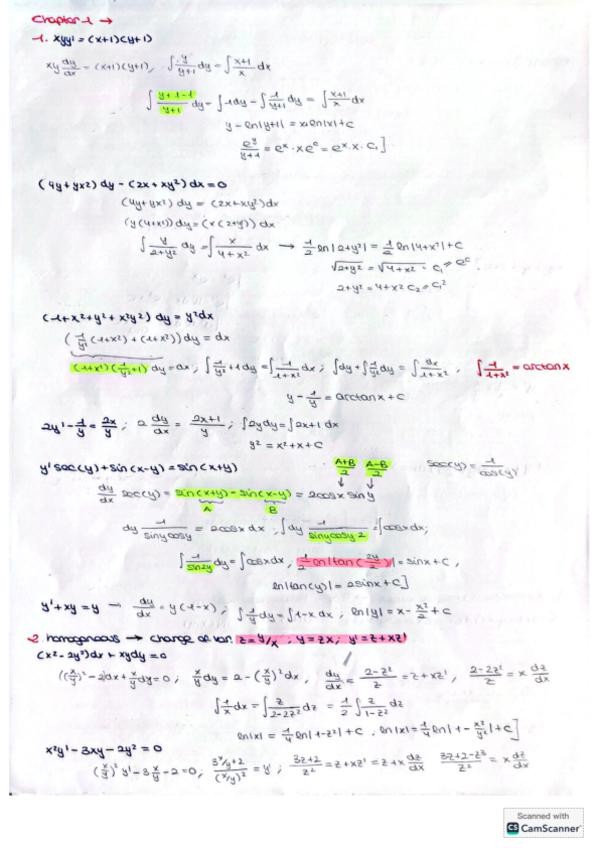 Chapter 1 →
1. xyy' = (x+1)(y+1)
xy dy/dx = (x+1)(y+1), ∫ y/(y+1) dy = ∫ (x+1)/x dx
∫ (y+1-1)/(y+1) dy = ∫1dy - ∫ 1/(y+1) dy = ∫ (x+1)/x dx
y - ln|y+1| = x+ln|x|+c
e^y/(y+1) = e^x · x e^c = e^x · x · c₁]
(4y+yx2) dy - (2x+xy²) dx = 0
(4y+yx²) dy = (2x+xy²)dx
(y(4+x²)) dy = (x(2+y²)) dx
∫ y/(2+y²) dy = ∫ x/(4+x²) dx → 1/2 ln|2+y²| = 1/2 ln|4+x²|+c
√2+y² = √4+x² · c₁ = e^c
2+y² = 4+x² c₂ = c₁²
(1+x²+y²+x²y²) dy = y²dx
(1/y² (1+x²) + (1+x²)) dy = dx
(1+x²)(1/y²+1) dy = dx, ∫ 1/y²+1 dy = ∫ 1/(1+x²) dx; ∫dy+∫ 1/y² dy = ∫ dx/(1+x²), ∫ 1/(1+x²) = arctanx
y - 1/y = arctanx+c
2y' - 1/y = 2x/y; 2 dy/dx = (2x+1)/y; ∫2ydy = ∫2x+1 dx
y² = x²+x+c
y' sec(y) + sin(x-y) = sin(x+y) (A+B)/2 (A-B)/2 sec(y) = 1/cos(y)
dy/dx sec(y) = sin(x+y) - sin(x-y) = 2cosx siny
A B
dy 1/(siny cosy) = 2cosx dx, ∫dy 1/(siny cosy 2) = ∫cosx dx;
∫ 1/sin2y dy = ∫cosxdx, 1/2 ln|tan(2y/2)| = sinx+c,
ln|tan(y)| = 2sinx+c]
y'+xy = y → dy/dx = y(1-x), ∫ 1/y dy = ∫1-x dx, ln|y| = x - x²/2 + c
2 homogeneous → change of var. z = y/x, y = zx, y' = z+xz'
(x²-2y²)dx + xydy = 0
((x/y)² - 2)dx + x/y dy = 0, x/y dy = 2 - (x/y)² dx, dy/dx = (2-z²)/z = z+xz', (2-2z²)/z = x dz/dx
∫ 1/x dx = ∫ z/(2-2z²) dz = 1/2 ∫ z/(1-z²)
ln|x| = 1/4 ln|1-z²|+c, ln|x| = 1/4 ln|1 - x²/y²|+c]
x²y' - 3xy - 2y² = 0
(x/y)² y' - 3 x/y - 2 = 0, (3x/y+2)/(x/y)² = y'; (3z+2)/z² = z+xz' = z+x dz/dx (3z+2-z³)/z² = x dz/dx
Scanned with
CS CamScanner